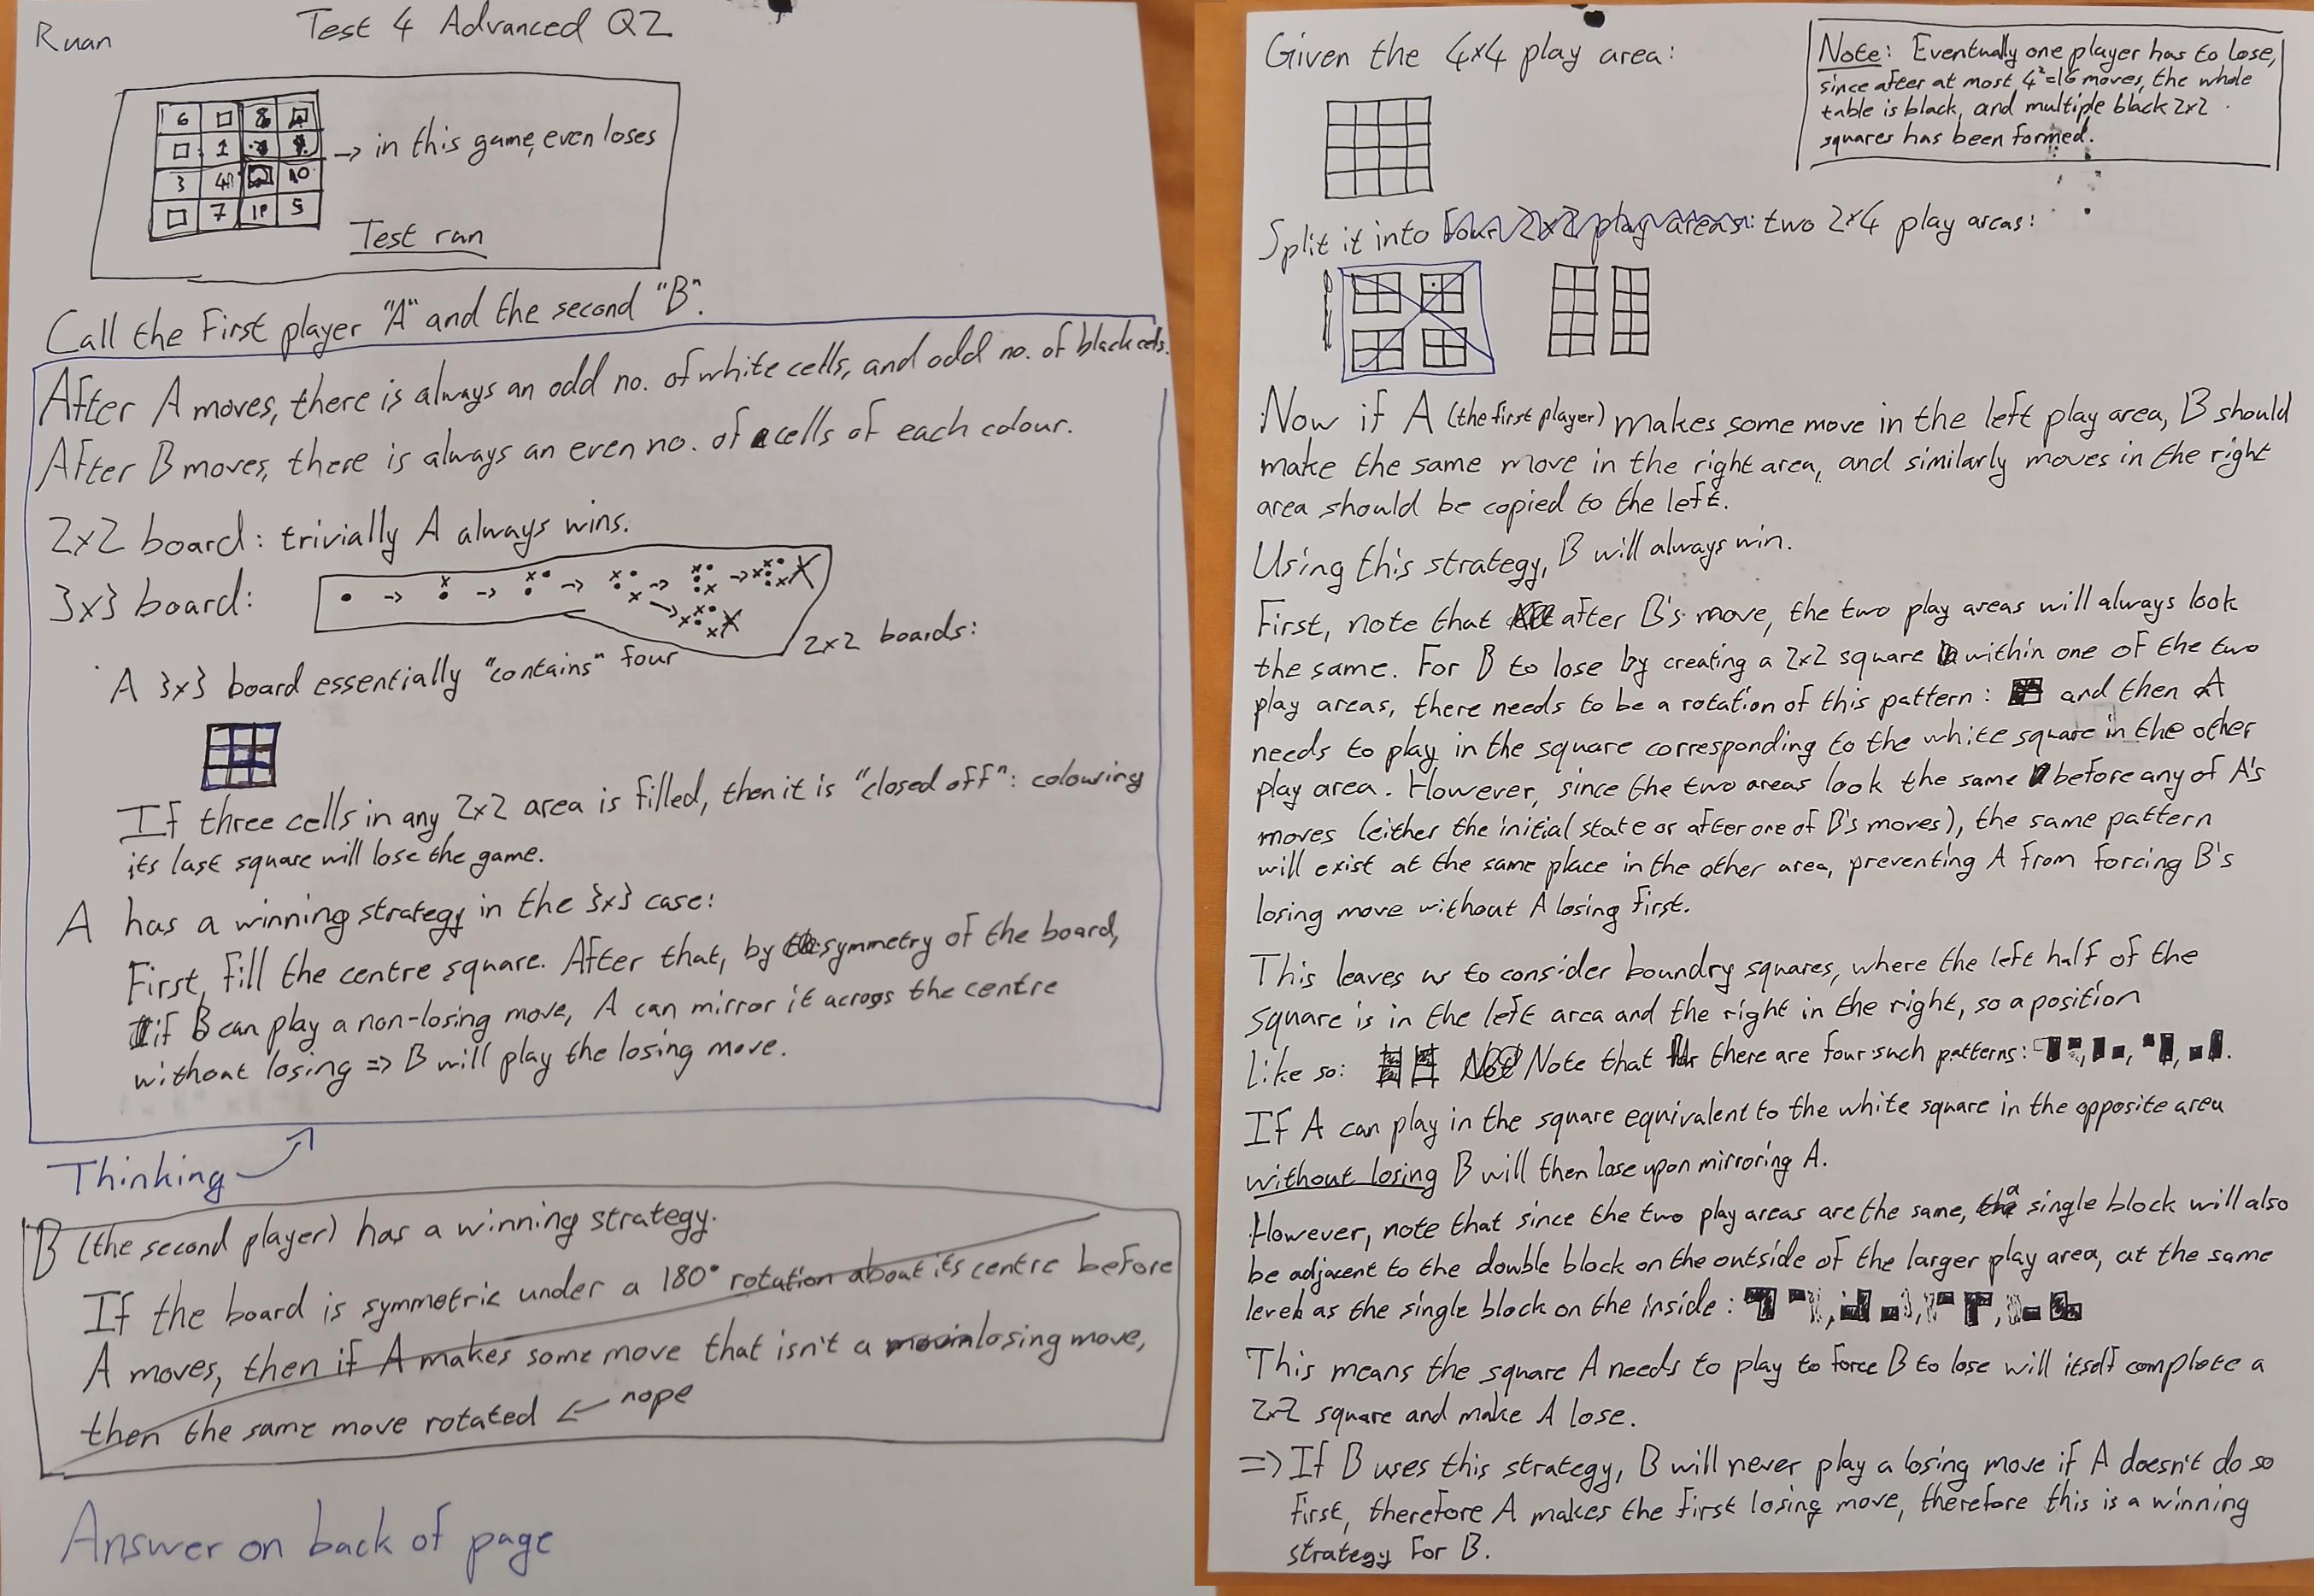 Ruan
Test 4 Advanced Q2
6
1
3
7 5
10
→ in this game, even loses
Test run
Call the First player "A" and the second "B".
After A moves, there is always an odd no. of white cells, and odd no. of black cells.
After B moves, there is always an even no. of cells of each colour.
2x2 board: trivially A always wins.
3x3 board:
2x2 boards:
A 3x3 board essentially "contains" four
If three cells in any 2x2 area is filled, then it is "closed off": colouring
its last square will lose the game.
A has a winning strategy in the 3x3 case:
First, fill the centre square. After that, by symmetry of the board,
if B can play a non-losing move, A can mirror it across the centre
without losing => B will play the losing move.
Thinking
B (the second player) has a winning strategy.
If the board is symmetric under a 180° rotation about its centre before
A moves, then if A makes some move that isn't a losing move,
then the same move rotated ← nope
Answer on back of page
Given the 4x4 play area:
Note: Eventually one player has to lose,
since after at most 4²=16 moves, the whole
table is black, and multiple black 2x2
squares has been formed.
Split it into four 2x2 play areas: two 2x4 play areas:
Now if A (the first player) makes some move in the left play area, B should
make the same move in the right area, and similarly moves in the right
area should be copied to the left.
Using this strategy, B will always win.
First, note that after B's move, the two play areas will always look
the same. For B to lose by creating a 2x2 square within one of the two
play areas, there needs to be a rotation of this pattern: and then A
needs to play in the square corresponding to the white square in the other
play area. However, since the two areas look the same before any of A's
moves (either the initial state or after one of B's moves), the same pattern
will exist at the same place in the other area, preventing A from forcing B's
losing move without A losing first.
This leaves us to consider boundry squares, where the left half of the
square is in the left area and the right in the right, so a position
like so: Note that there are four such patterns: , , , .
If A can play in the square equivalent to the white square in the opposite area
without losing B will then lose upon mirroring A.
However, note that since the two play areas are the same, a single block will also
be adjacent to the double block on the outside of the larger play area, at the same
level as the single block on the inside: , , ,
This means the square A needs to play to force B to lose will itself complete a
2x2 square and make A lose.
=> If B uses this strategy, B will never play a losing move if A doesn't do so
first, therefore A makes the first losing move, therefore this is a winning
strategy for B.